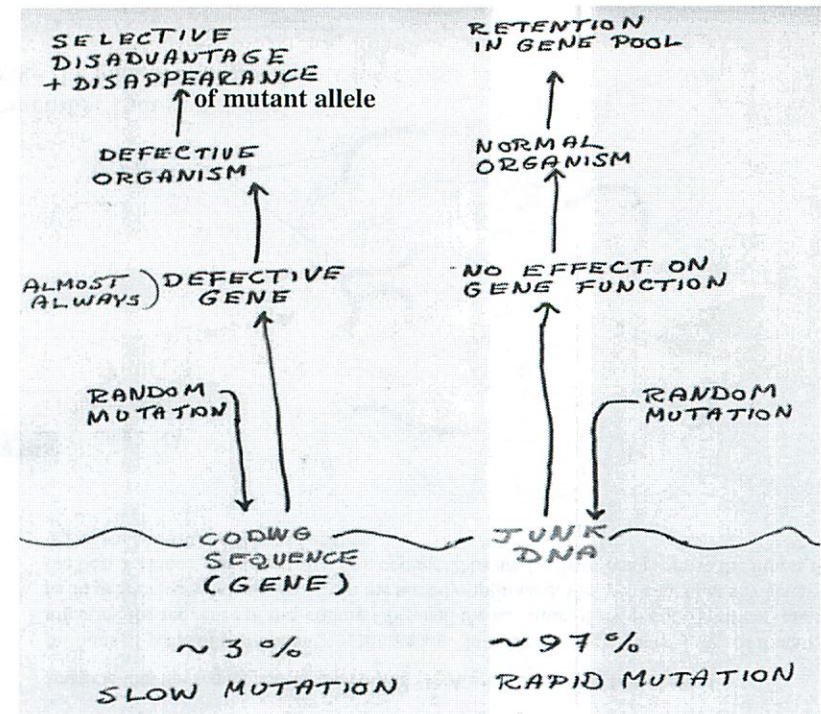 SELECTIVE
DISADVANTAGE
+ DISAPPEARANCE
of mutant allele
DEFECTIVE
ORGANISM
ALMOST
ALWAYS)
DEFECTIVE
GENE
RANDOM
MUTATION
CODING
SEQUENCE
(GENE)
~3%
SLOW MUTATION
RETENTION
IN GENE POOL
NORMAL
ORGANISM
NO EFFECT ON
GENE FUNCTION
RANDOM
MUTATION
JUNK
DNA
~97%
RAPID MUTATION